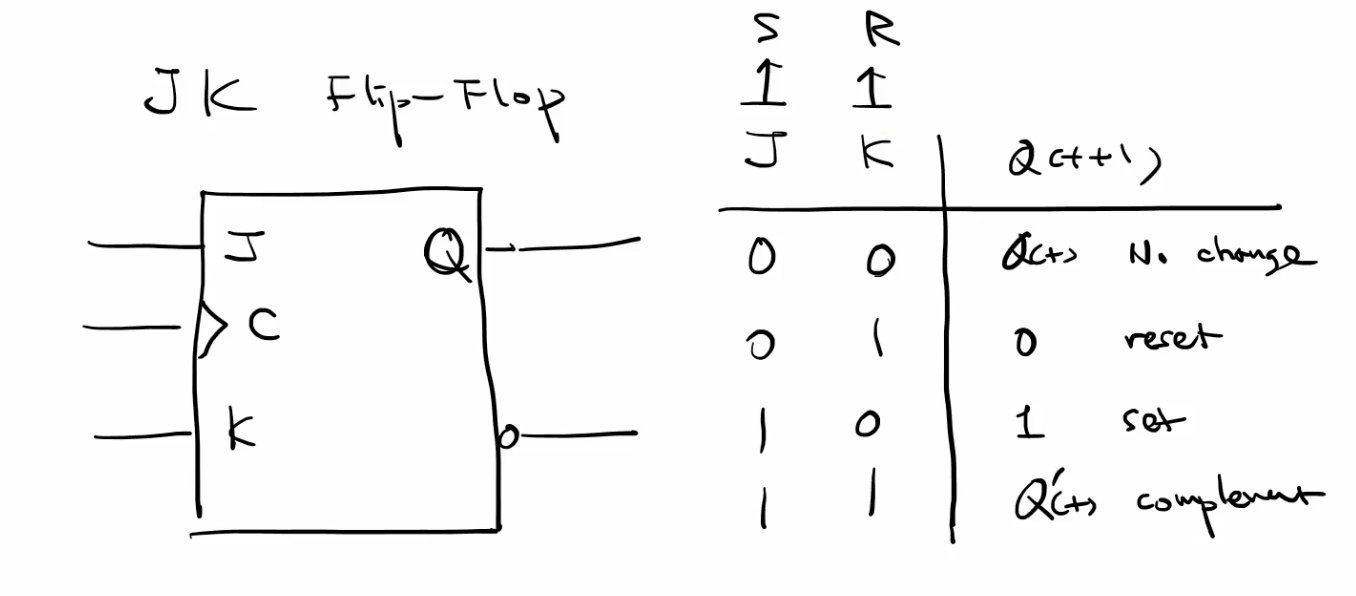 JK Flip-Flop
J Q
C
K
S R
↑ ↑
J K Q(t+1)
0 0 Q(t) No change
0 1 0 reset
1 0 1 set
1 1 Q'(t) complement